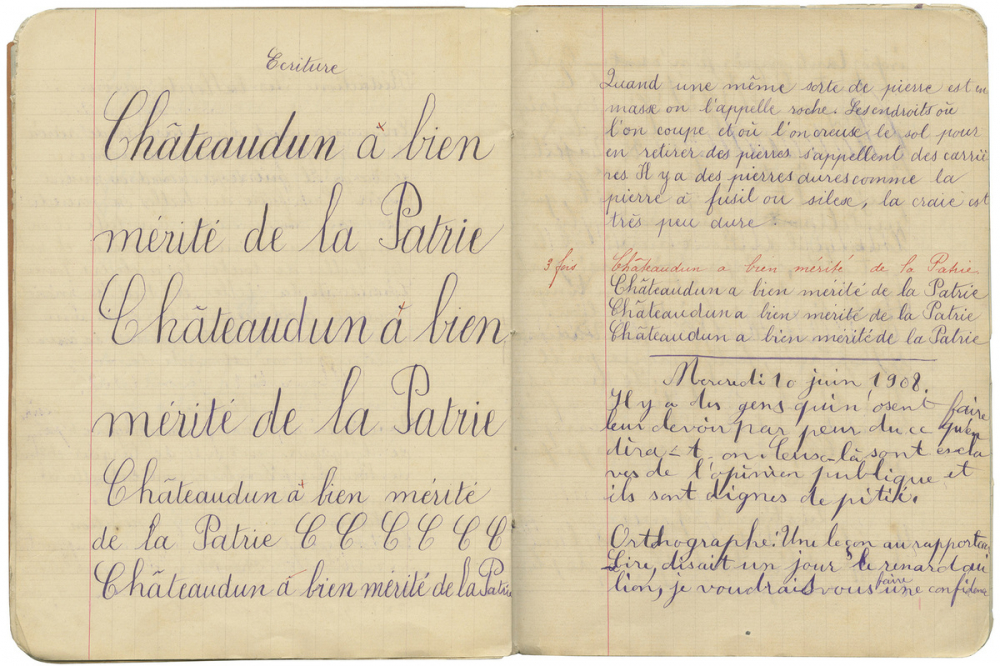 Ecriture
Châteaudun à bien
mérité de la Patrie
Châteaudun à bien
mérité de la Patrie
Châteaudun à bien mérité
de la Patrie C C C C C C
Châteaudun a bien mérité de la Patrie
Quand une même sorte de pierre est en
masse on l'appelle roche. Les endroits où
l'on coupe et où l'on creuse le sol pour
en retirer des pierres s'appellent des carriè
res Il y a des pierres dures comme la
pierre à fusil ou silex, la craie est
très peu dure.
3 fois Châteaudun a bien mérité de la Patrie
Châteaudun a bien mérité de la Patrie
Châteaudun a bien mérité de la Patrie
Châteaudun a bien mérité de la Patrie
Mercredi 10 juin 1908.
Il y a des gens qui n'osent faire
leur devoir par peur du ce qu'en
dira-t-on. Ceux-là sont escla
ves de l'opinion publique et
ils sont dignes de pitié.
Orthographe: Une leçon au rapporteur
Sire, disait un jour le renard au
lion, je voudrais vous faire une confidence